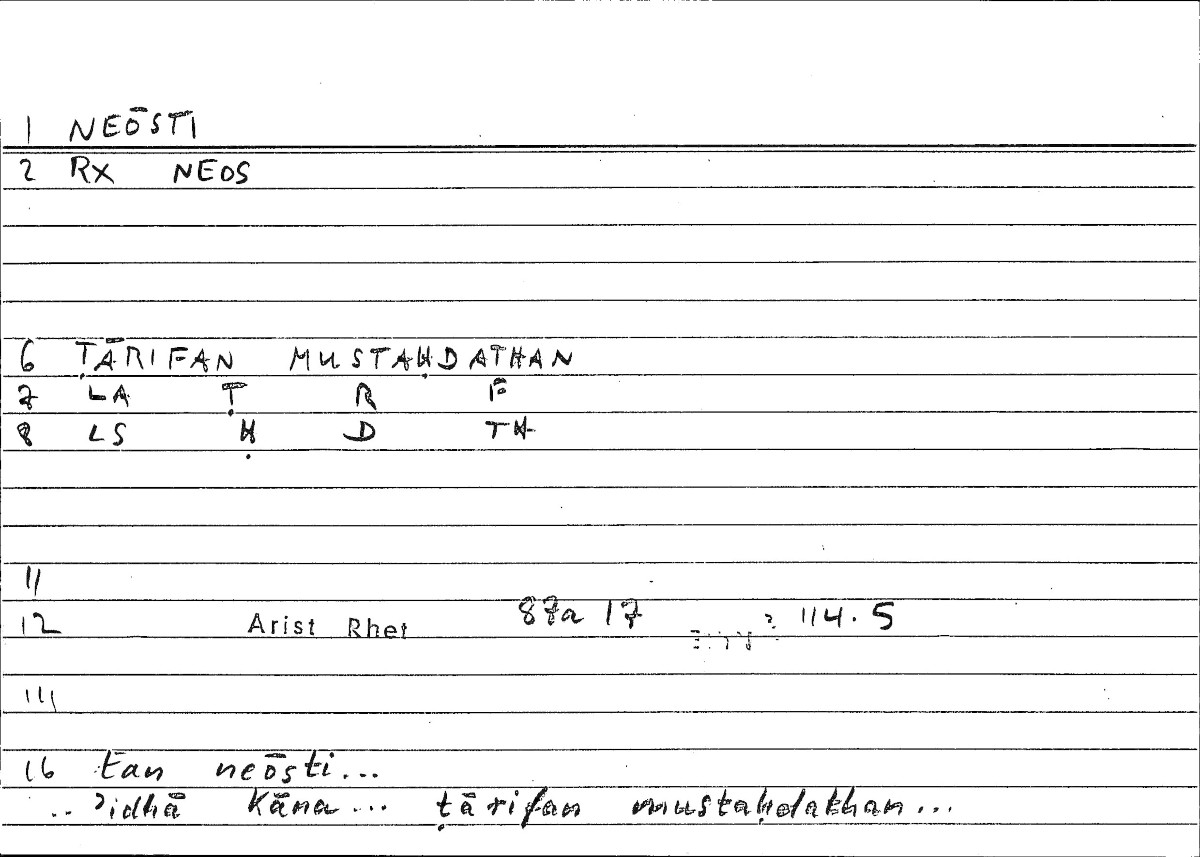 1 NEŌSTI
2 RX NEOS
6 ṬĀRIFAN MUSTAḤDATHAN
7 LA Ṭ R F
8 LS Ḥ D TH
11
12 Arist Rhet 87a 17 114.5
14
16 ean neōsti...
.. ʾidhā kāna... ṭārifan mustaḥdathan...